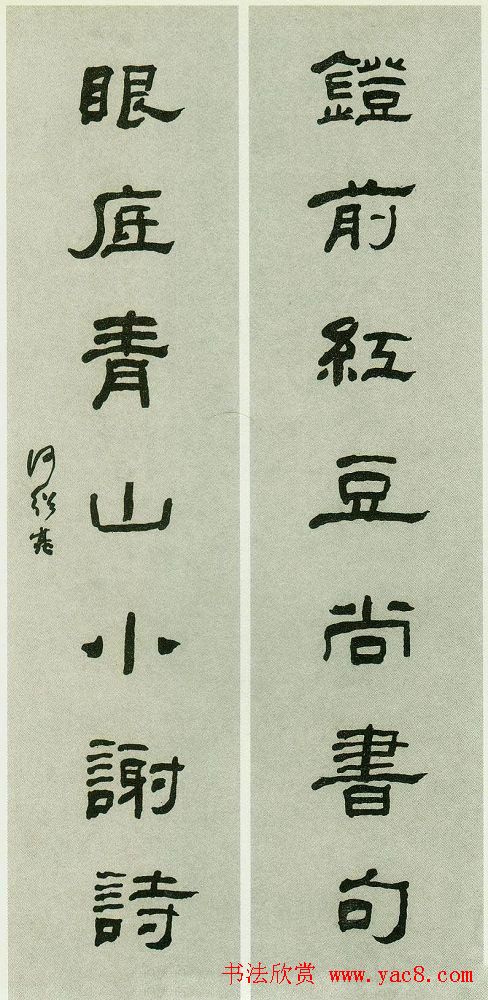 鐙前紅豆尚書句
眼底青山小謝詩
何紹基
书法欣赏 www.yac8.com